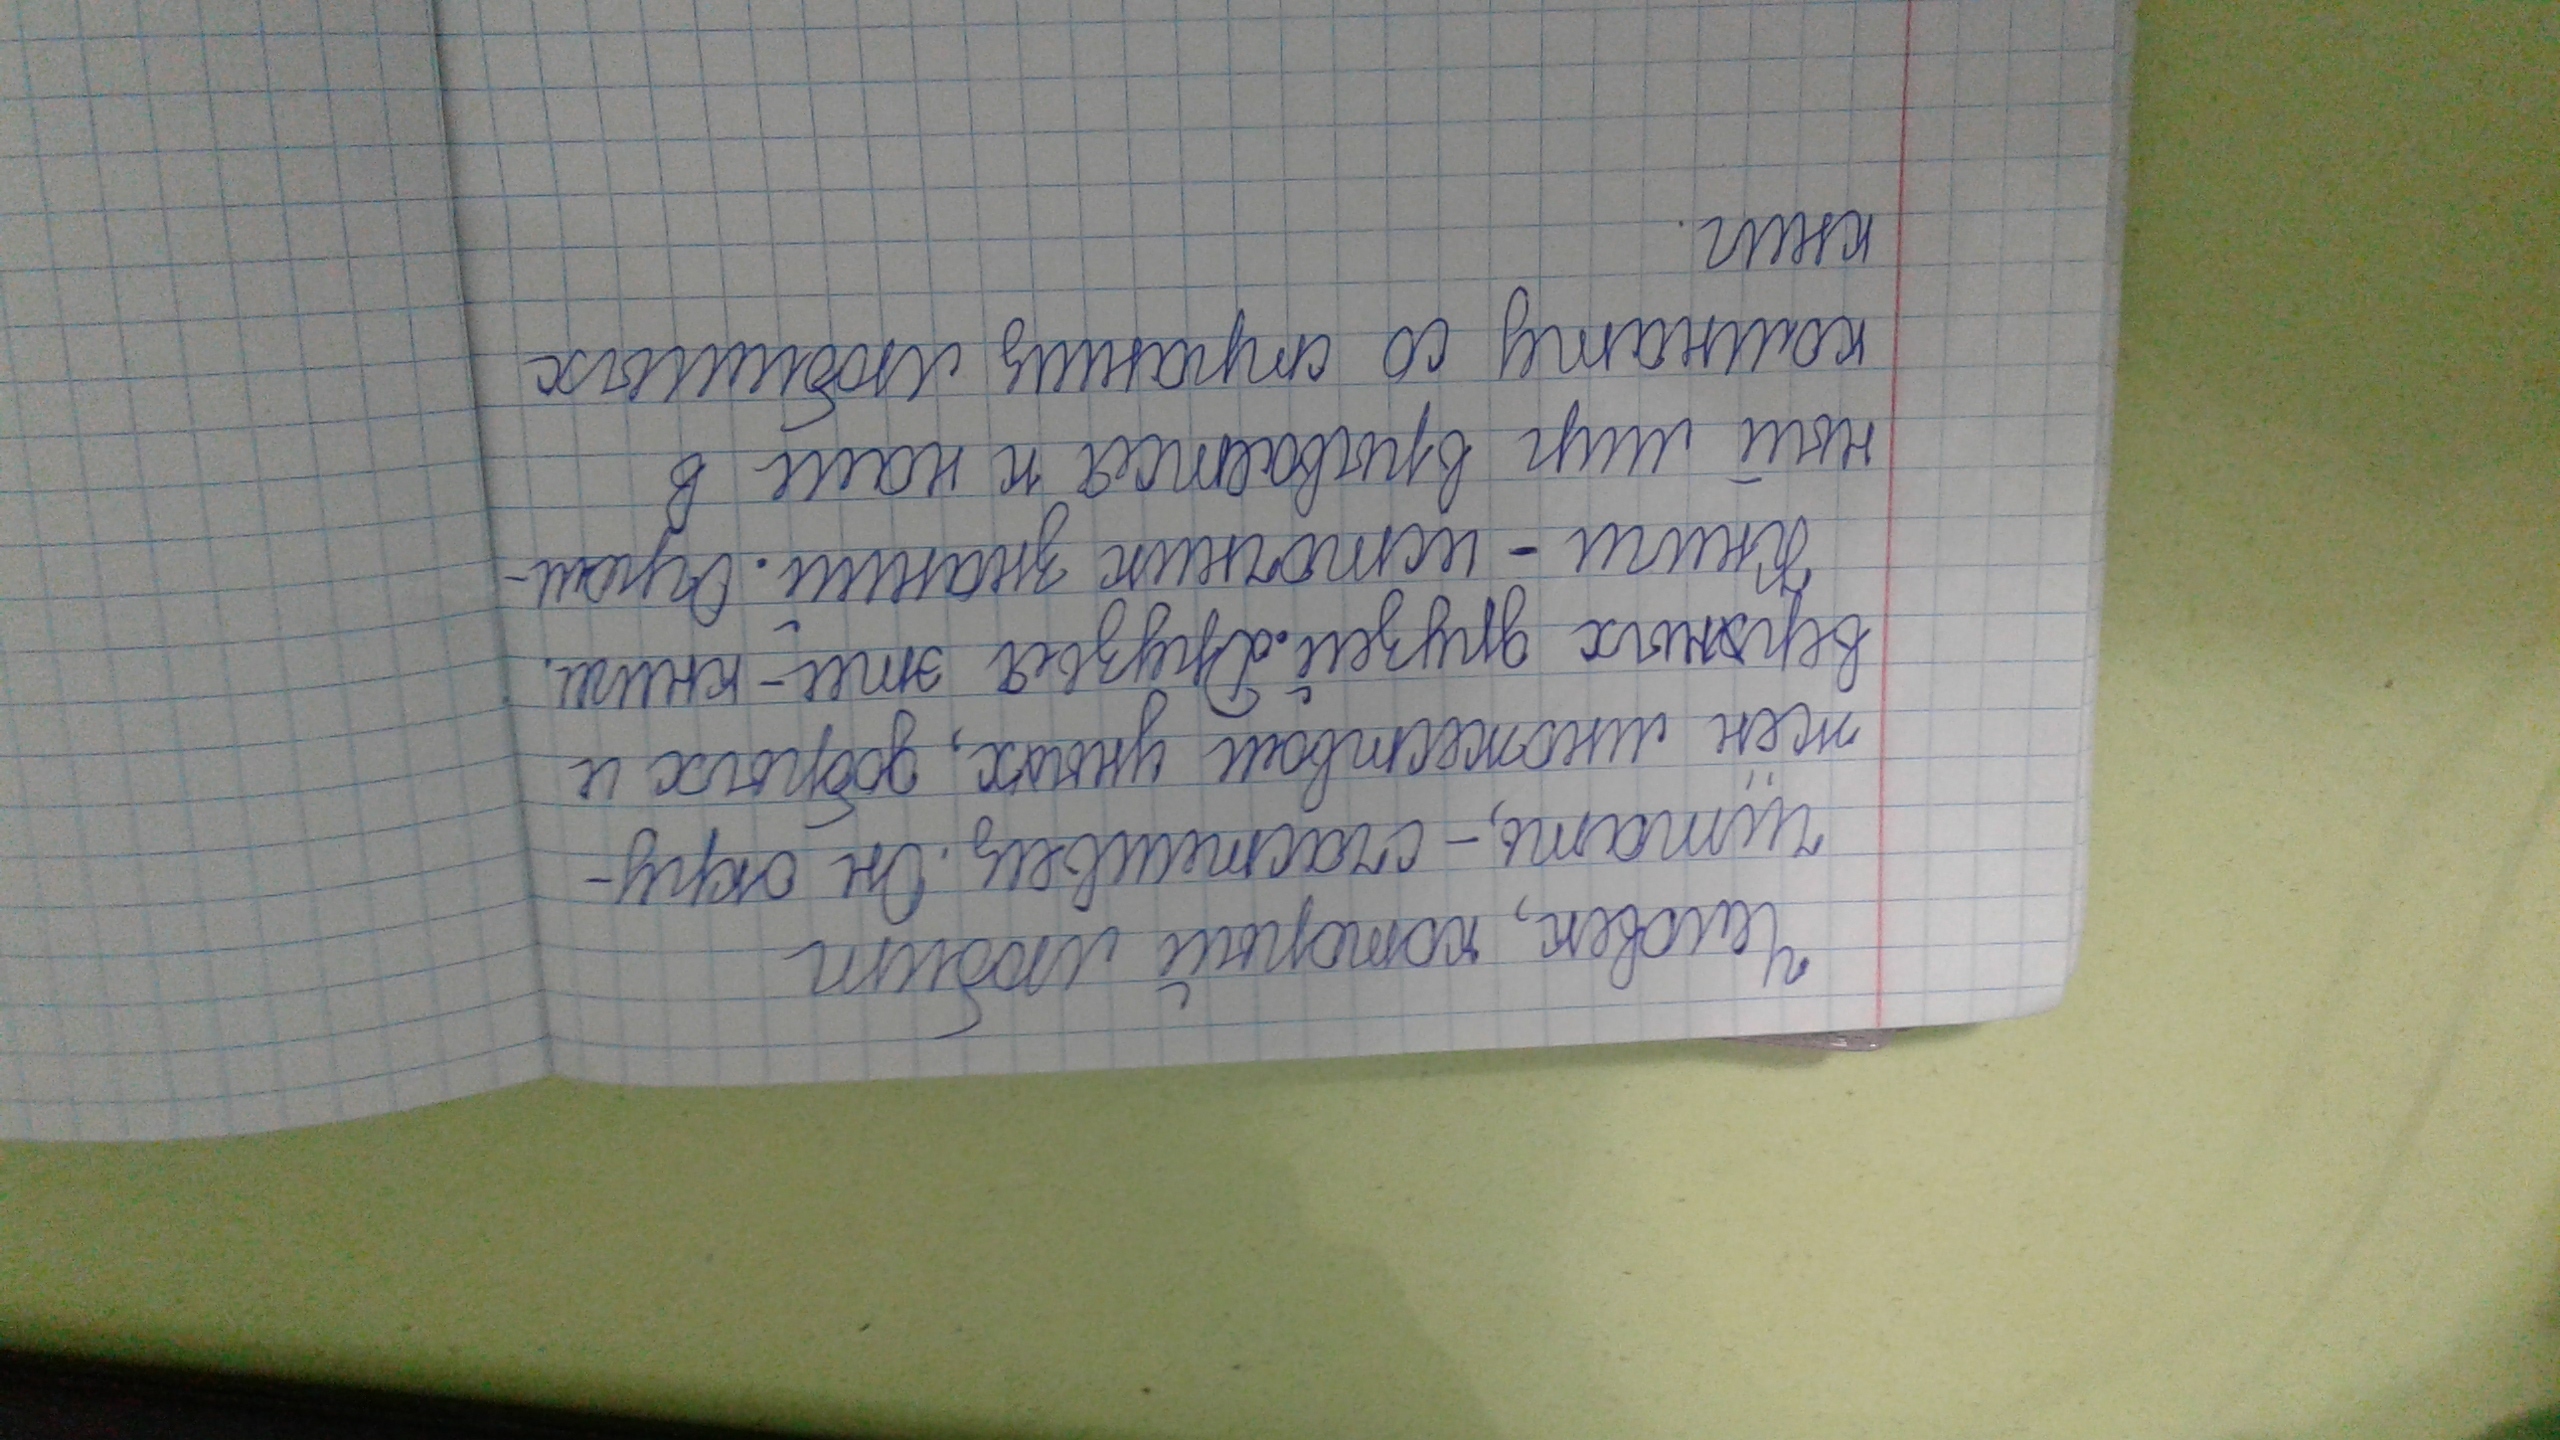 Человек, который любит
читать, - счастливец. Он окру-
жён множеством умных, добрых и
верных друзей. Друзья эти - книги.
Книги - источник знаний. Огром-
ный мир врывается к нам в
комнату со страниц любимых
книг.